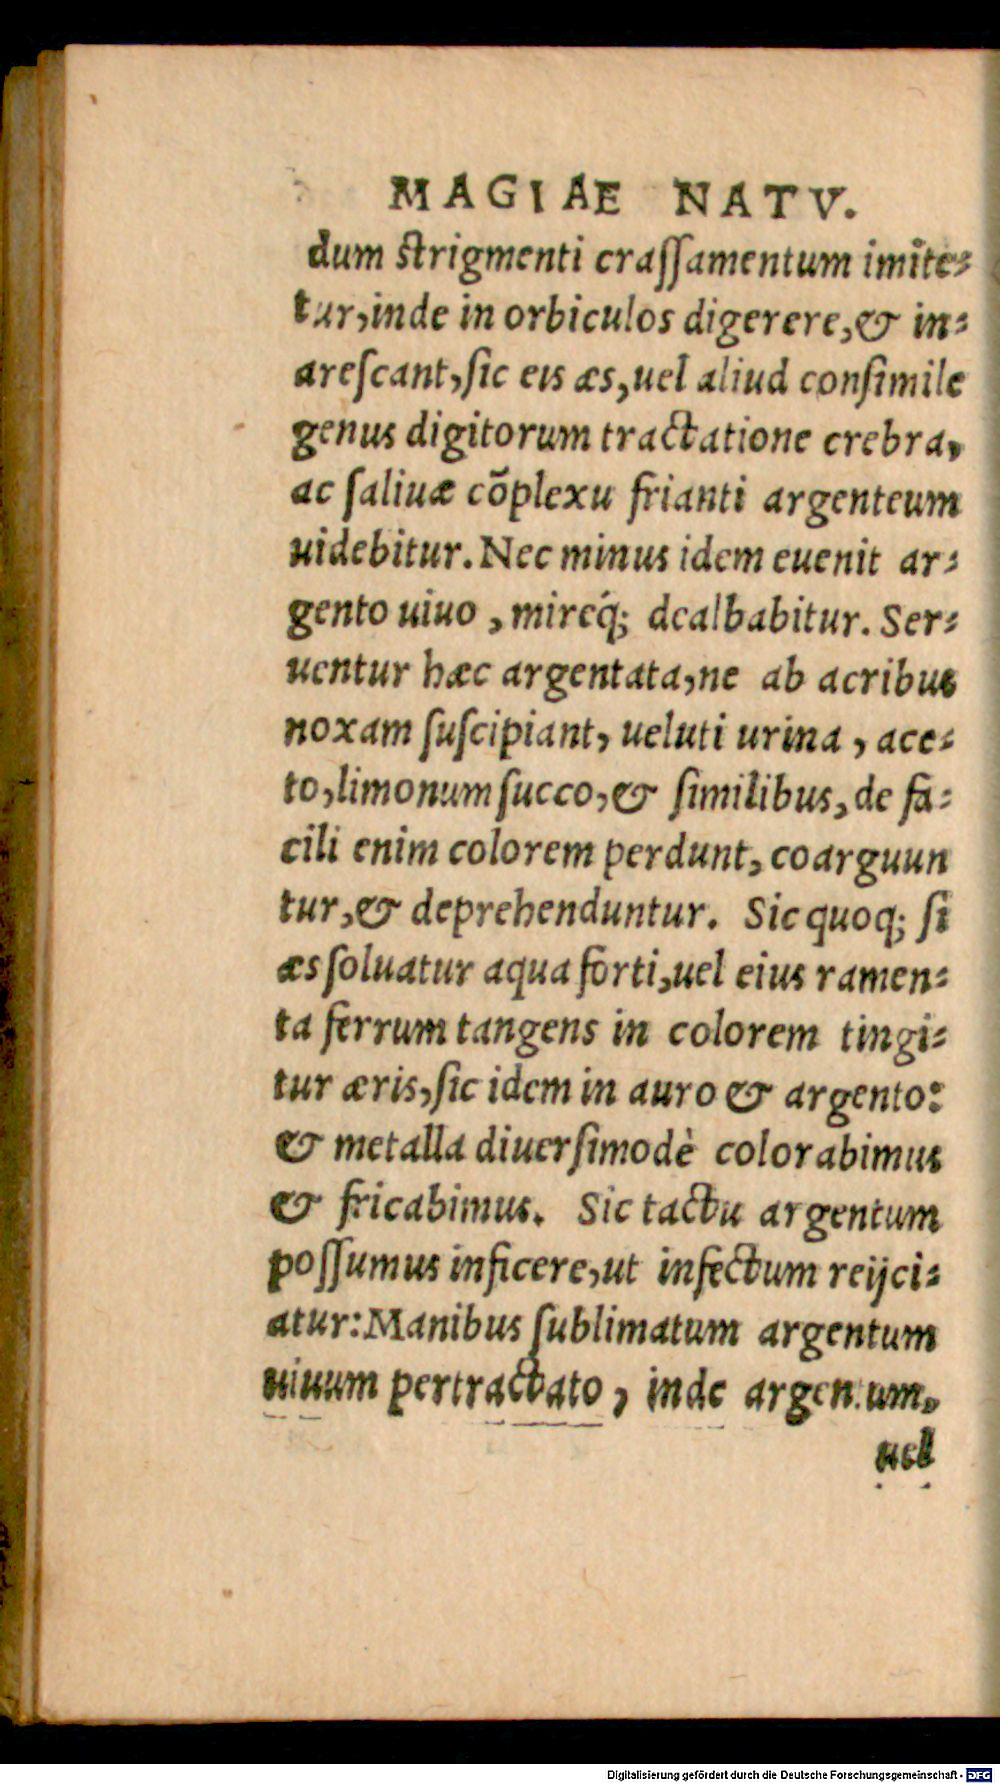 MAGIAE NATV.
dum ſtrigmenti craſſamentum imite-
tur, inde in orbiculos digerere, & in-
areſcant, ſic eis æs, uel aliud conſimile
genus digitorum tractatione crebra,
ac ſaliuæ cõplexu frianti argenteum
uidebitur. Nec minus idem euenit ar-
gento uiuo, mireq́; dealbabitur. Ser-
uentur hæc argentata, ne ab acribus
noxam ſuſcipiant, ueluti urina, ace-
to, limonum ſucco, & ſimilibus, de fa-
cili enim colorem perdunt, coarguun
tur, & deprehenduntur. Sic quoq; ſi
æs ſoluatur aqua forti, uel eius ramen-
ta ferrum tangens in colorem tingi-
tur æris, ſic idem in auro & argento:
& metalla diuerſimodè colorabimus
& fricabimus. Sic tactu argentum
poſſumus inficere, ut infectum reijci-
atur: Manibus ſublimatum argentum
uiuum pertractato, inde argentum,
uel
Digitalisierung gefördert durch die Deutsche Forschungsgemeinschaft - DFG